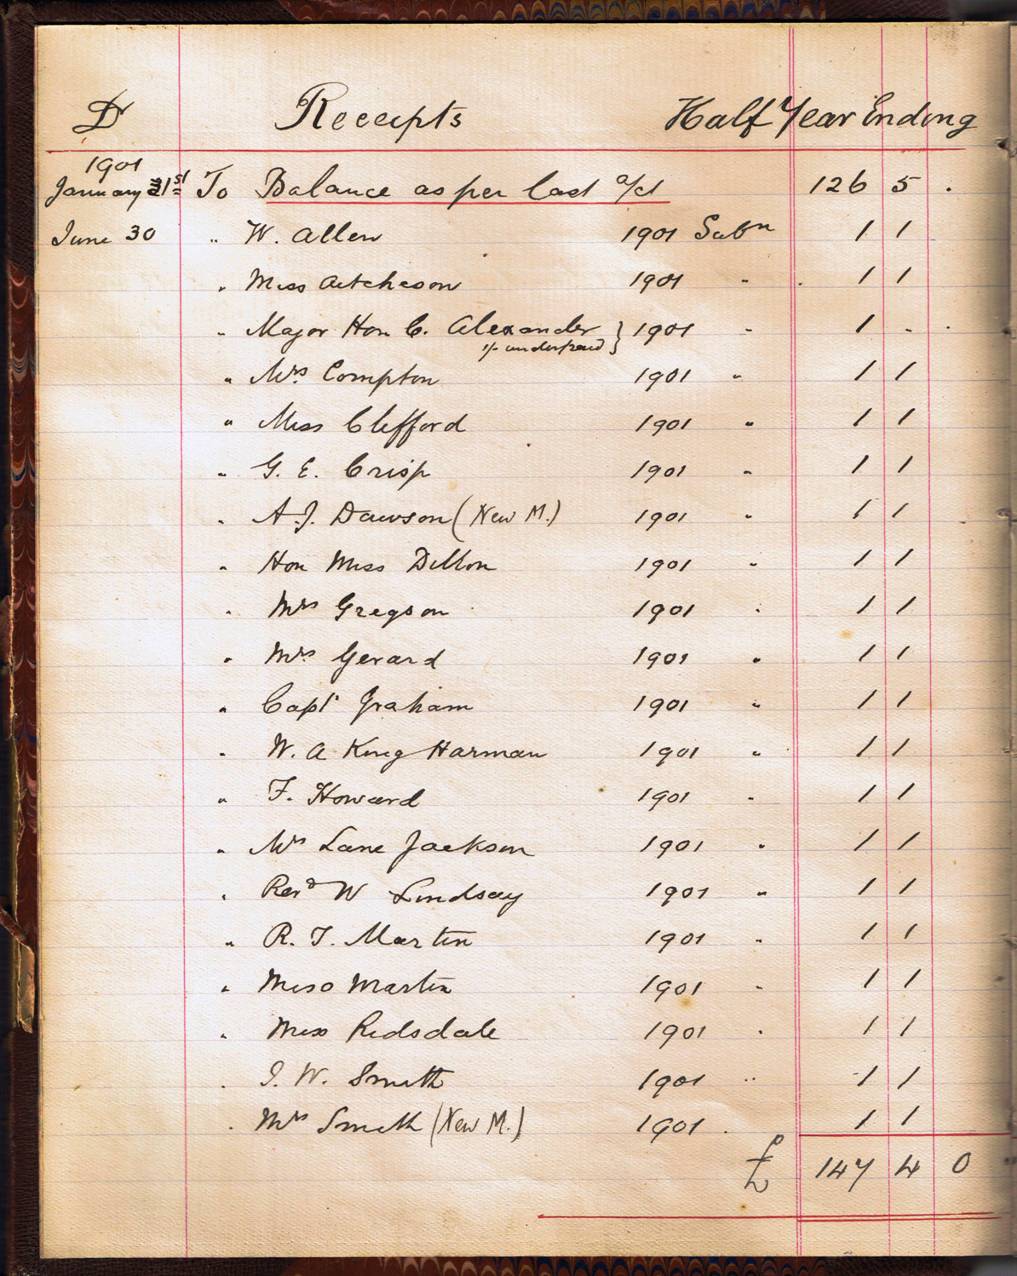 Dr Receipts Half Year Ending
1901
January 31st To Balance as per last a/ct 126 5 .
June 30 " W. Allen 1901 Subn 1 1
" Miss Aitcheson 1901 " 1 1
" Major Hon C. Alexander } 1901 " 1 . .
1/- underpaid
" Mrs Compton 1901 " 1 1
" Miss Clifford 1901 " 1 1
" G. E. Crisp 1901 " 1 1
" A. J. Dawson (New M.) 1901 " 1 1
" Hon Miss Dillon 1901 " 1 1
" Mrs Gregson 1901 " 1 1
" Mrs Gerard 1901 " 1 1
" Capt Graham 1901 " 1 1
" W. A King Harman 1901 " 1 1
" F. Howard 1901 " 1 1
" Mrs Lane Jackson 1901 " 1 1
" Revd W Lindsay 1901 " 1 1
" R. T. Martin 1901 " 1 1
" Miss Martin 1901 " 1 1
" Miss Ridsdale 1901 " 1 1
" J. W. Smith 1901 " 1 1
" Mrs Smith (New M.) 1901 " 1 1
£ 147 4 0